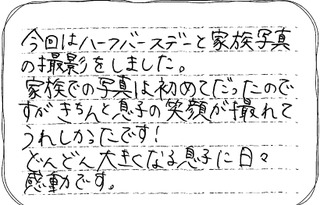 今回はハーフバースデーと家族写真
の撮影をしました。
家族での写真は初めてだったので
すがきちんと息子の笑顔が撮れて
うれしかったです!
どんどん大きくなる息子に日々
感動です。